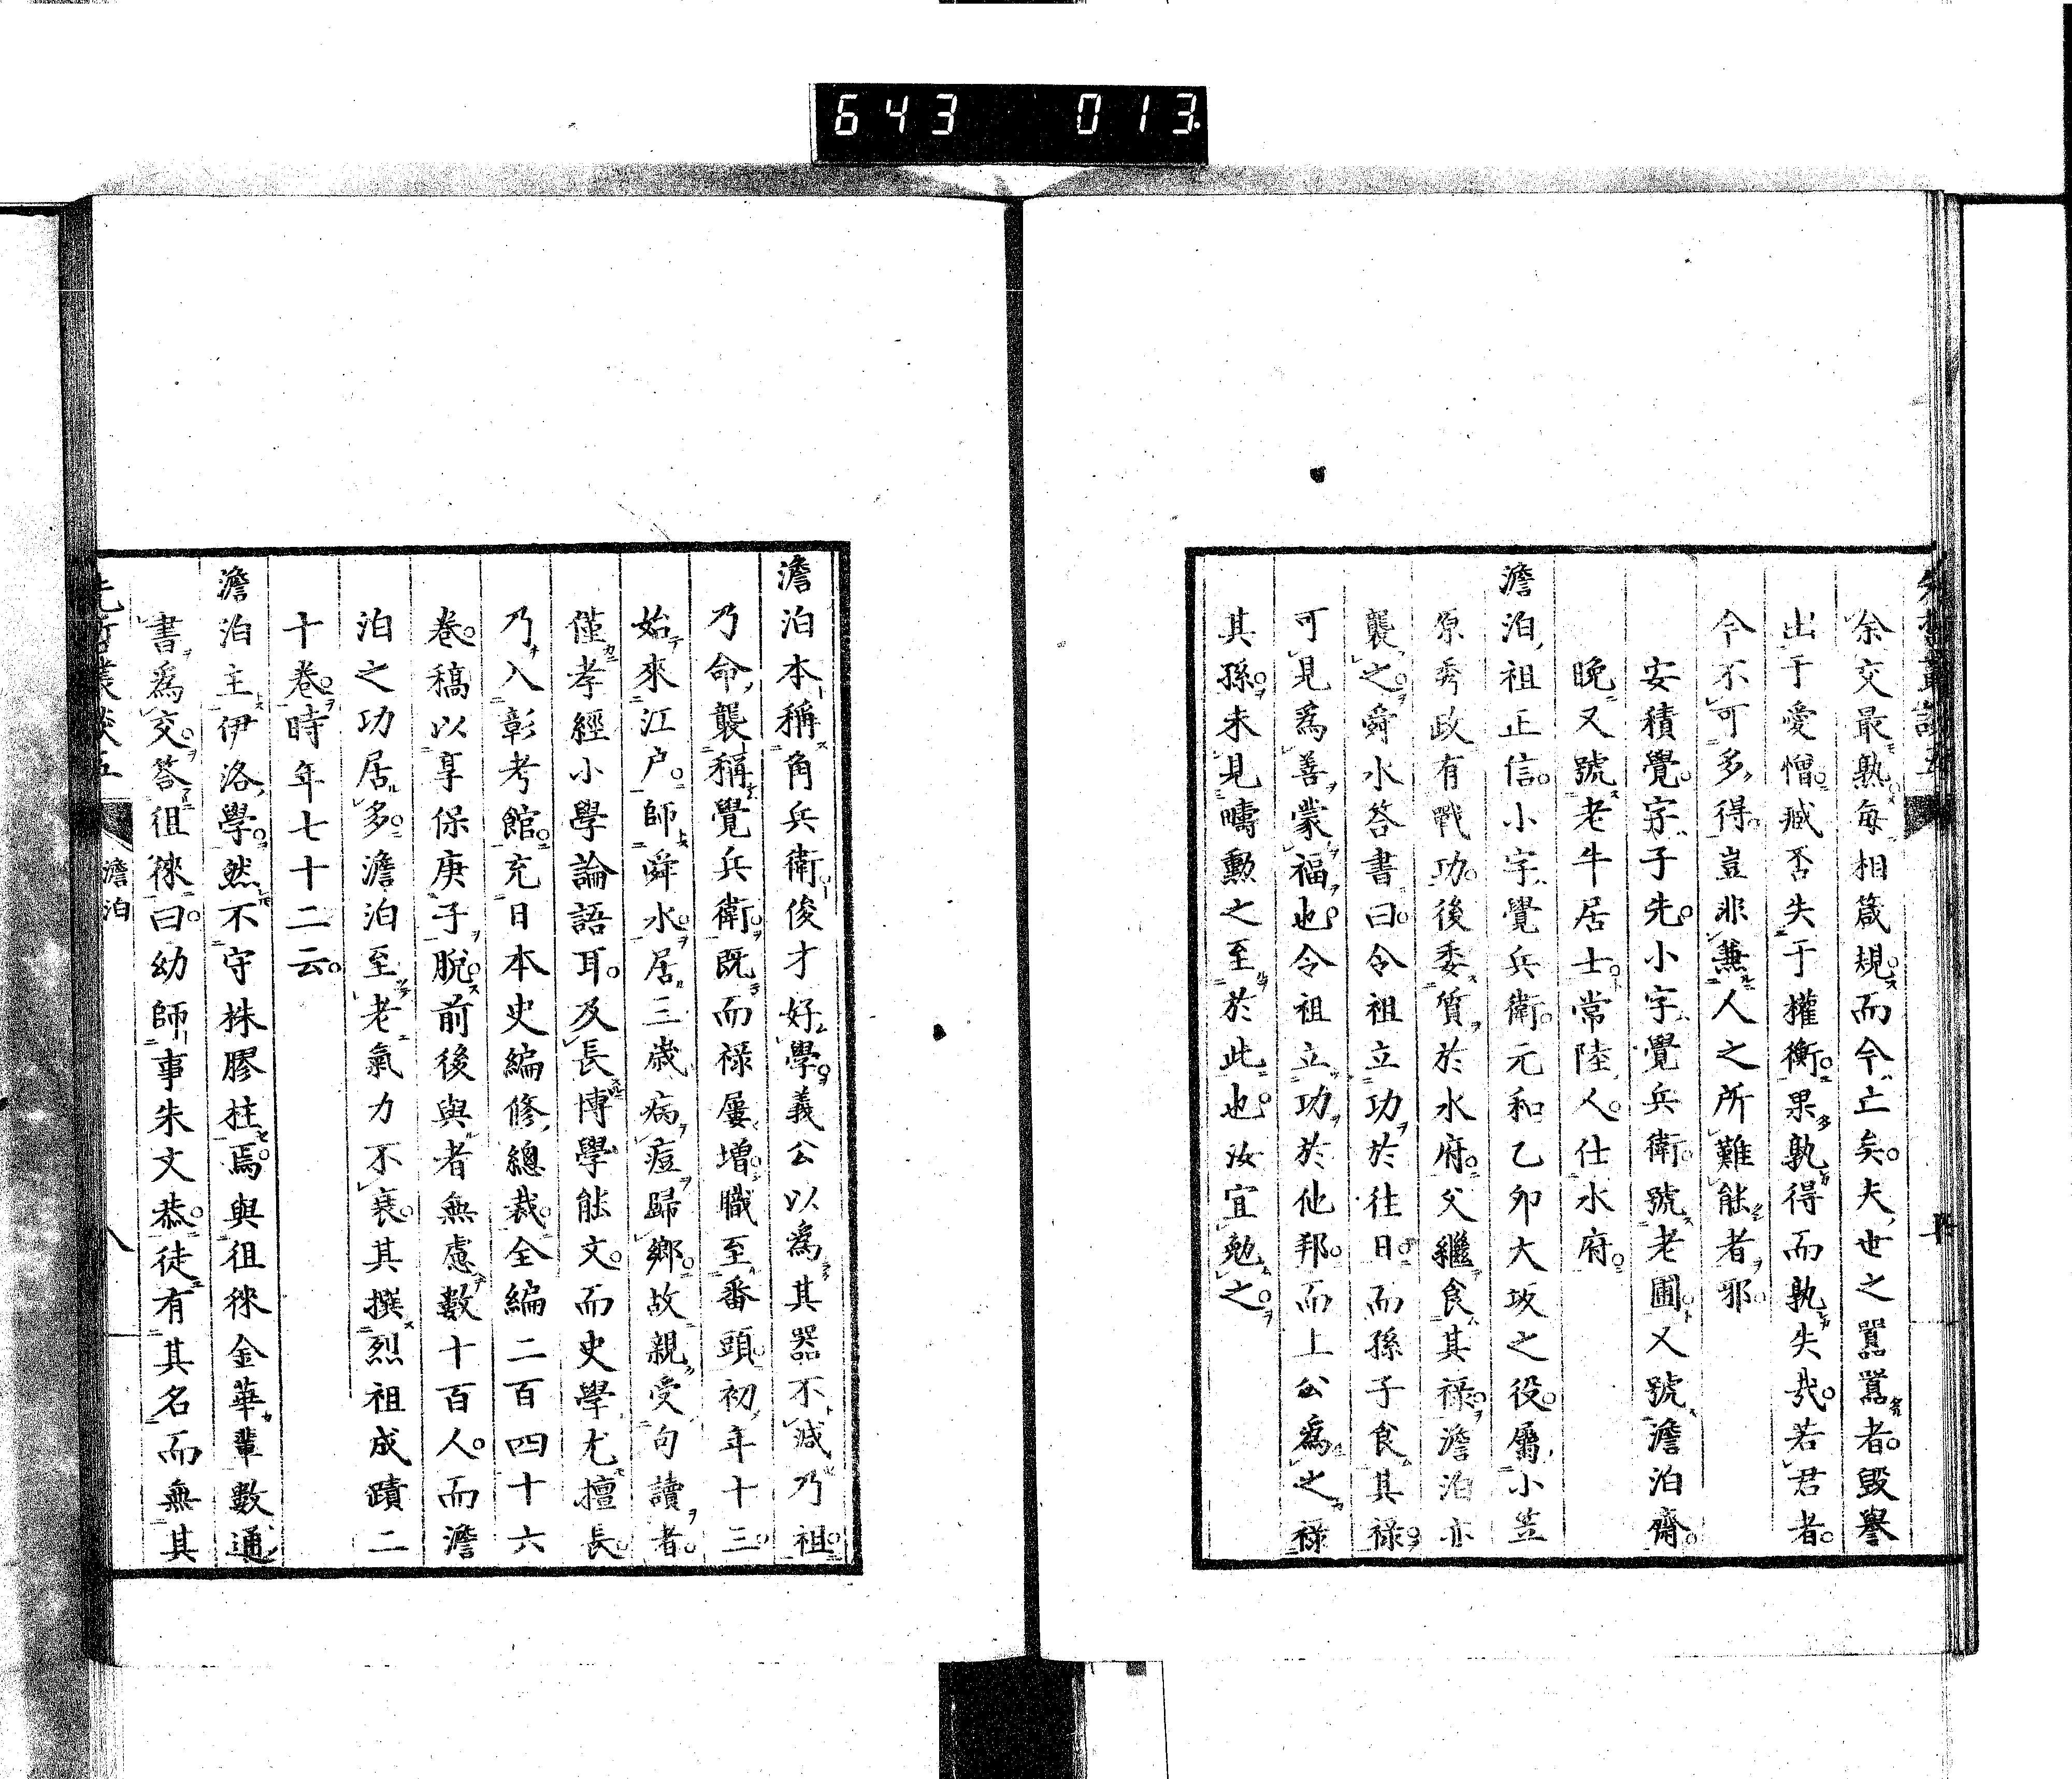 643 013
余交最熟每相箴規而今亡矣夫世之囂囂者毀譽
出于愛憎臧否失于權衡果孰得而孰失哉若君者
今不可多得豈非兼人之所難能者邪
安積覺字子先小字覺兵衛號老圃又號澹泊齋
晚又號老牛居士常陸人仕水府
澹泊祖正信小字覺兵衛元和乙卯大坂之役屬小笠
原秀政有戰功後委質於水府父繼食其祿澹泊亦
襲之舜水答書曰令祖立功於往日而孫子食其祿
可見為善蒙福也令祖立功於他邦而上公為之祿
其孫未見疇勲之至於此也汝宜勉之
澹泊本稱角兵衛俊才好學義公以為其器不減乃祖
乃命襲稱覺兵衛既而祿屢增職至番頭初年十三
始來江戶師舜水居三歲病痘歸鄉故親受句讀者
僅孝經小學論語耳及長博學能文而史學尤擅長
乃入彰考館充日本史編修總裁全編二百四十六
卷稿以享保庚子脫前後與者無慮數十百人而澹
泊之功居多澹泊至老氣力不衰其撰烈祖成蹟二
十卷時年七十二云
澹泊主伊洛學然不守株膠柱焉與徂徠金華輩數通
書為交答徂徠曰幼師事朱文恭徒有其名而無其
先哲叢談五 澹泊 八